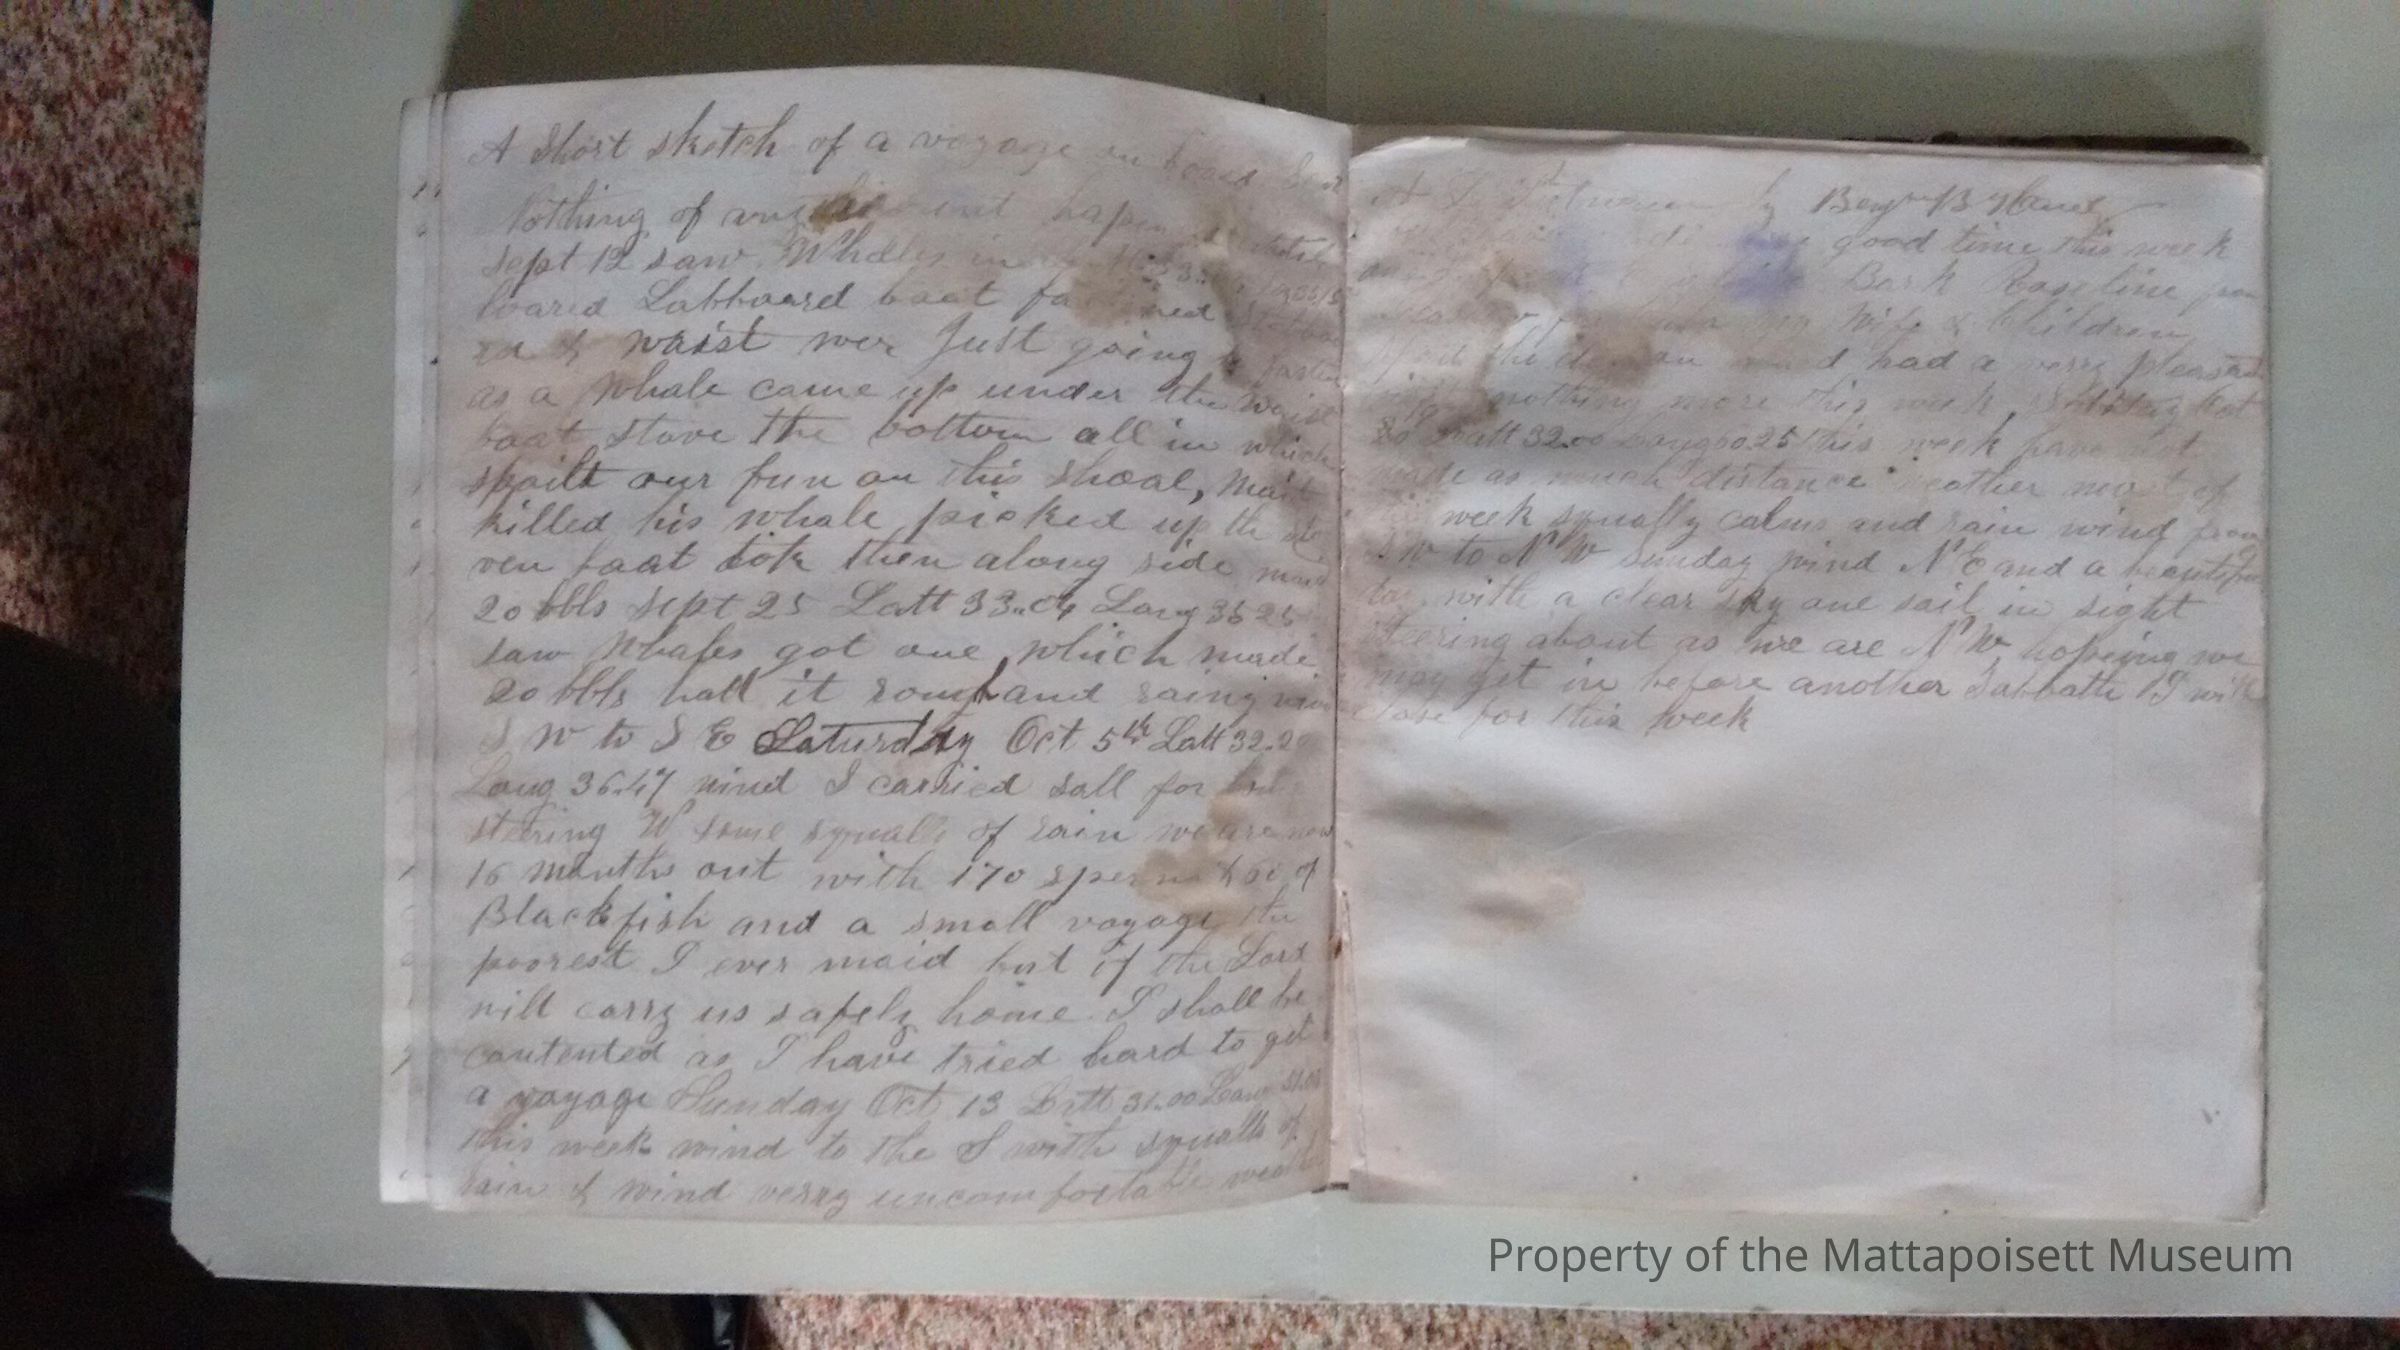 A Short sketch of a voyage on board
Nothing of any hapen
sept 12 saw Whales in
loared Labboard boat
& waist wer Just going
as a whale came up under the waist
boat stove the bottom all in which
spoilt our fun on this shoal, Mait
killed his whale picked up the sto
ven boat tok then along side maid
20 bbls sept 25 Latt 33..04 Long 35 25
saw whales got one which made
20 bbls half it and raing
S W to S E Saturday Oct 5th Latt 32.2
Long 36.17 wind S carried sall for
steering W some squalls of rain we are now
16 months out with 170 sperm & 60 of
Blackfish and a small voyage the
poorest I ever maid but if the Lord
will carry us safely home I shall be
contented as I have tried hard to get
a voyage Sunday Oct 13 Latt 31..00 Long
this week wind to the S with squalls of
rain & wind verry uncomfortable
by Benj
good time this week
Bark from
Wife & Children
had a verry pleasant
nothing more this week
20 Latt 32..00 Long 60.25 this week have not
made as much distance weather most of
week squally calms and rain wind from
S W to N W Sunday wind N E and a beautiful
day with a clear sky one sail in sight
steering about as we are N W hopeing we
may get in before another Sabbath I will
close for this week
Property of the Mattapoisett Museum